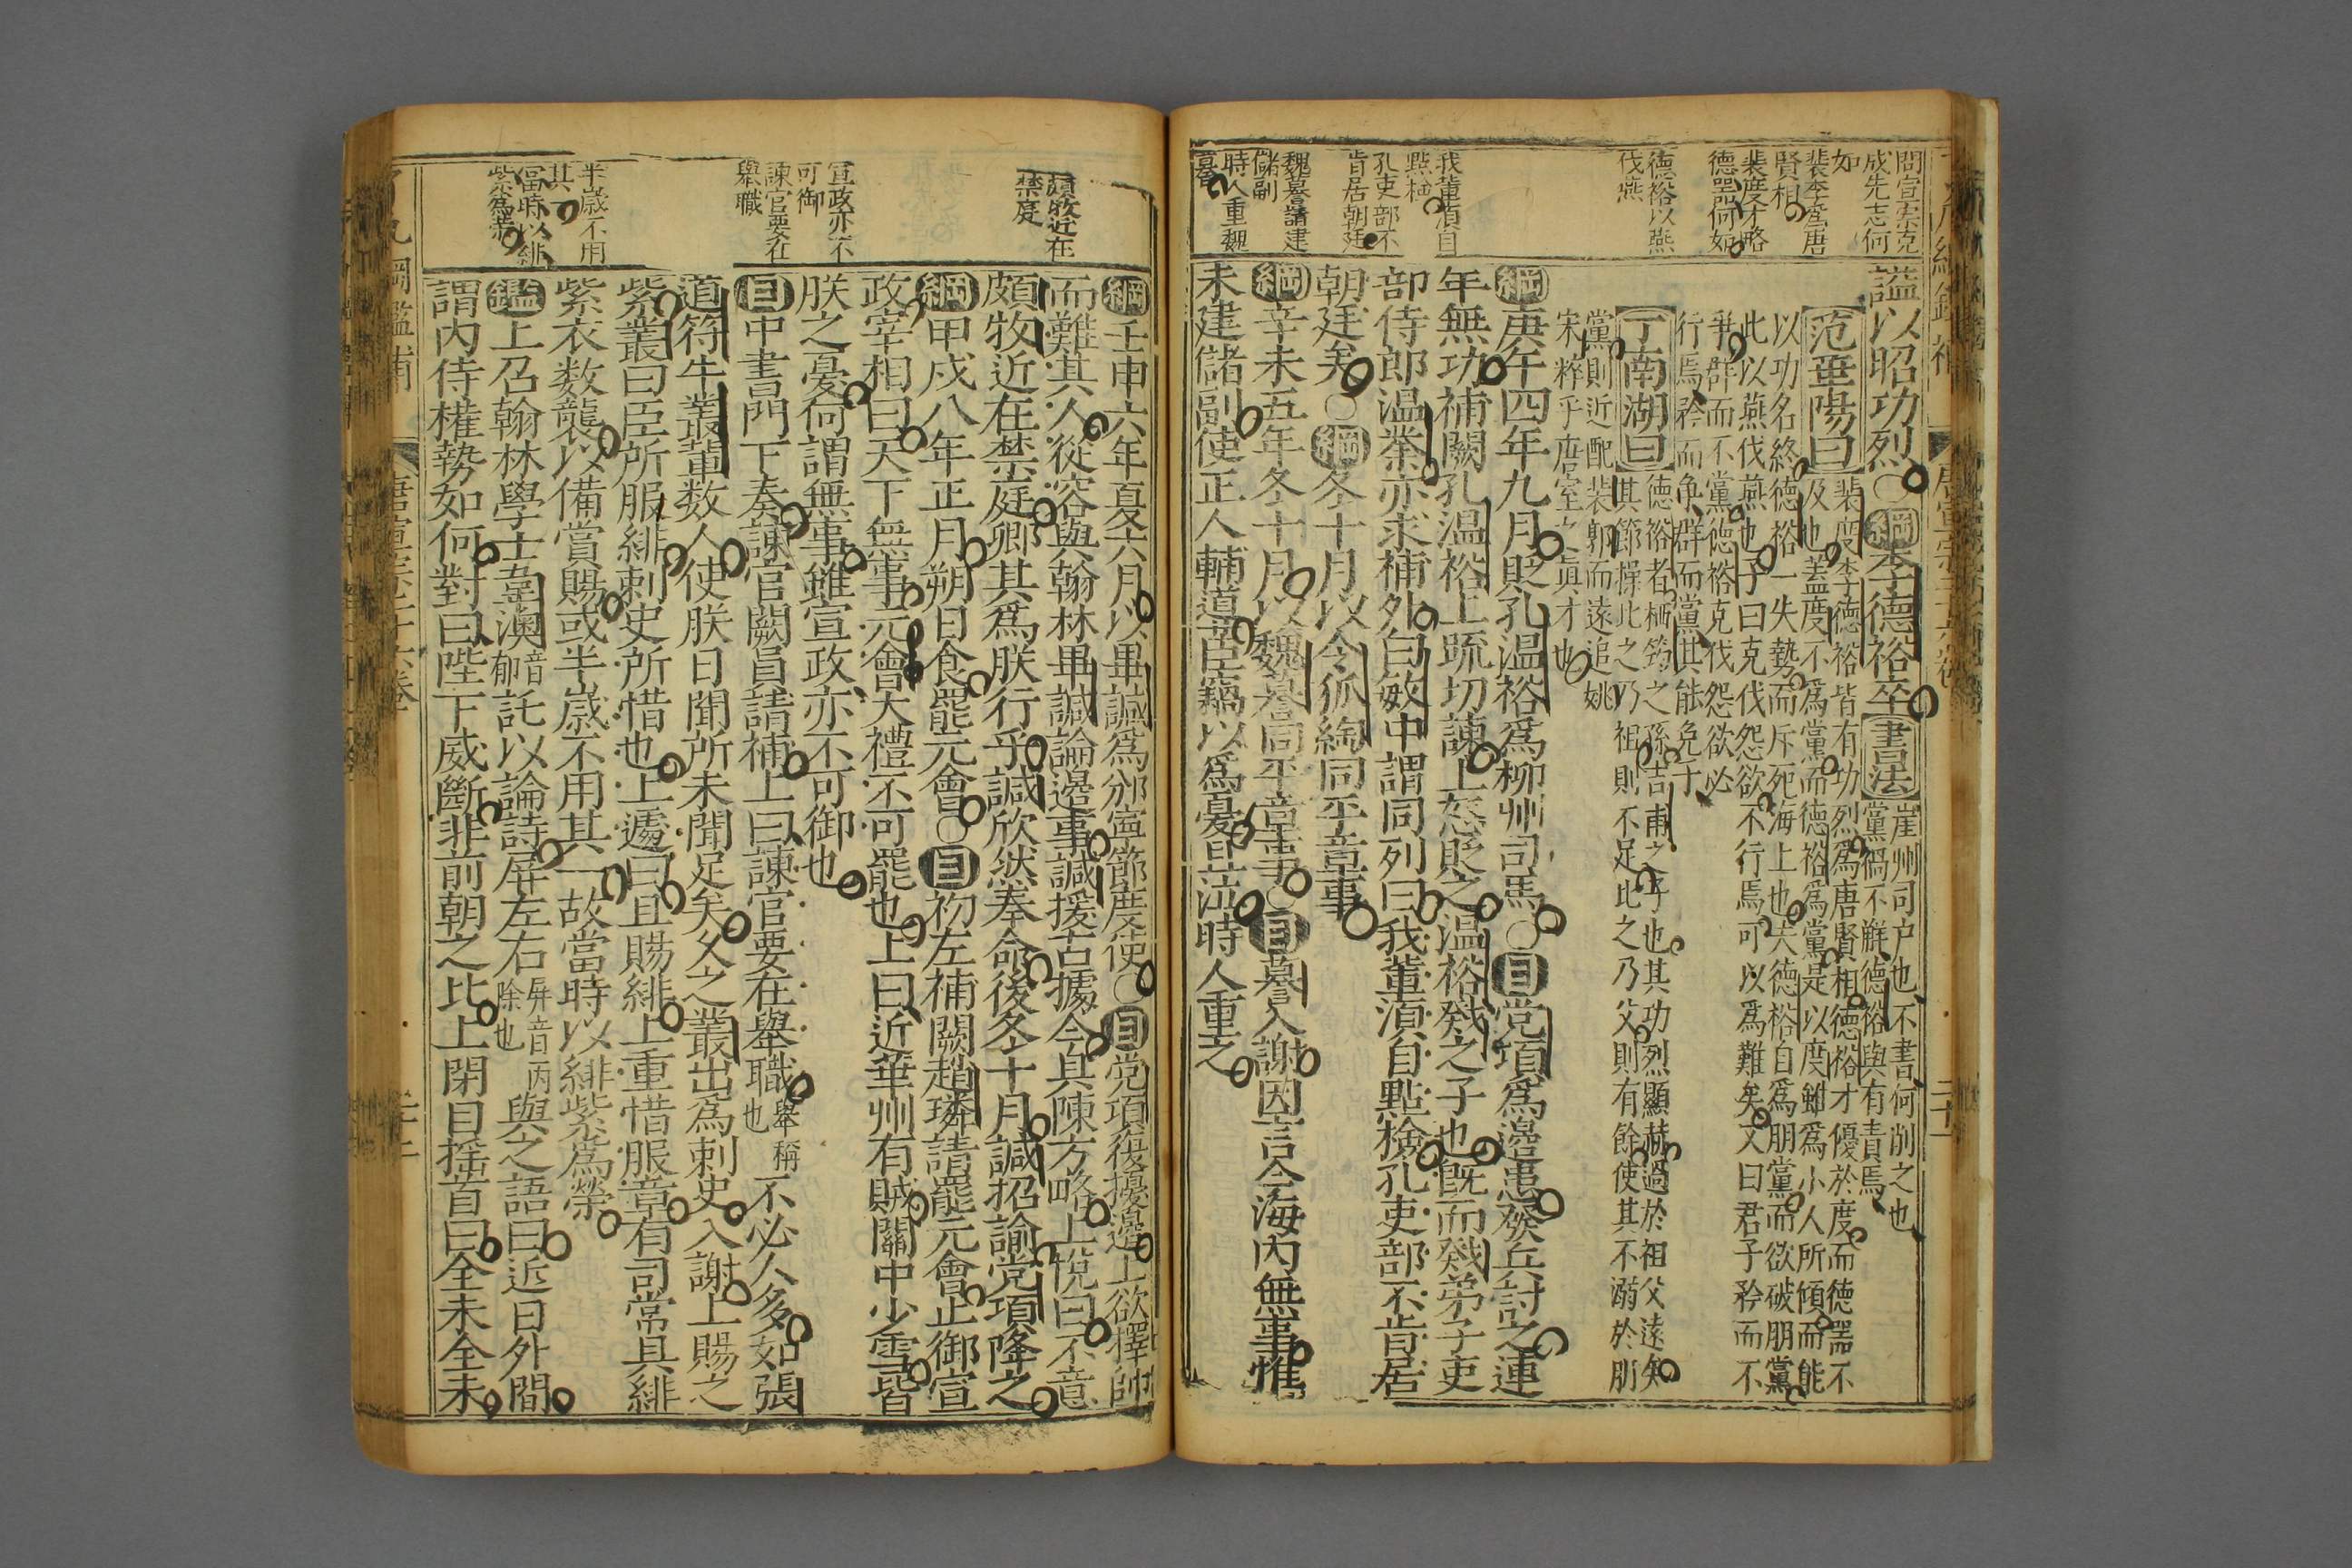 問宣宗克
成先志何
如
裴李為唐
賢相
裴度才略
德器何如
德裕以燕
伐燕
我輩須自
點檢
孔吏部不
肯居朝廷
魏謩請建
儲副
時人重魏
謩
謚以昭功烈〇綱李德裕卒書法崖州司户也不書何削之也
黨禍不觧德裕與有責焉
范華陽曰裴度李德裕皆有功烈為唐賢相德裕才優於度而德噐不
及也蓋度不為黨而德裕為黨是以度雖為小人所傾而能
以功名終德裕一失勢而斥死海上也夫德裕自為朋黨而欲破朋黨
此以燕伐燕也子曰克伐怨欲不行焉可以為難矣又曰君子矜而不
爭群而不黨德裕克伐怨欲必
行焉矜而争群而黨其能免于
丁南湖曰德裕者栖筠之孫吉甫之子也其功烈顯赫過於祖父遠矣
其節操比之乃祖則不足比之乃父則有餘使其不溺於朋
黨則近配裴郭而遠追姚
宋粹乎唐室之眞才也
綱庚午四年九月貶孔温裕為柳州司馬〇目党項為邊患發兵討之連
年無功補闕孔温裕上䟽切諫上怒貶之温裕戣之子也既而戣弟子吏
部侍郎温業亦求補外白敏中謂同列曰我輩須自點檢孔吏部不肯居
朝廷矣〇綱冬十月以令狐綯同平章事
綱辛未五年冬十月以魏謩同平章事〇目謩入謝因言今海内無事惟
未建儲副使正人輔道臣竊以為憂且泣時人重之
頗牧近在
禁庭
宣政亦不
可御
諫官要在
舉職
半歲不用
其一
當時以緋
紫為榮
綱壬申六年夏六月以畢諴為邠寧節度使〇目党項復擾邊上欲擇帥
而難其人從容與翰林畢諴論邊事諴援古據今具陳方略上悅曰不意
頗牧近在禁庭卿其為朕行乎諴欣然奉命後冬十月諴招諭党項降之
綱甲戌八年正月朔日食罷元會〇目初左補闕趙璘請罷元會止御宣
政宰相曰天下無事元會大禮不可罷也上曰近華州有賊關中少雪皆
朕之憂何謂無事雖宣政亦不可御也
目中書門下奏諫官闕員請補上曰諫官要在舉職舉稱也不必人多如張
道符牛叢輩数人使朕日聞所未聞足矣久之叢出為刺史入謝上賜之
紫叢曰臣所服緋刺史所惜也上遽曰且賜緋上重惜服章有司常具緋
紫衣数襲以備賞賜或半歲不用其一故當時以緋紫為榮
鑑上召翰林學士韋澳音郁託以論詩屏左右屏音丙除也與之語曰近日外間
謂内侍權勢如何對曰陛下威斷非前朝之比上閉目揺首曰全未全未